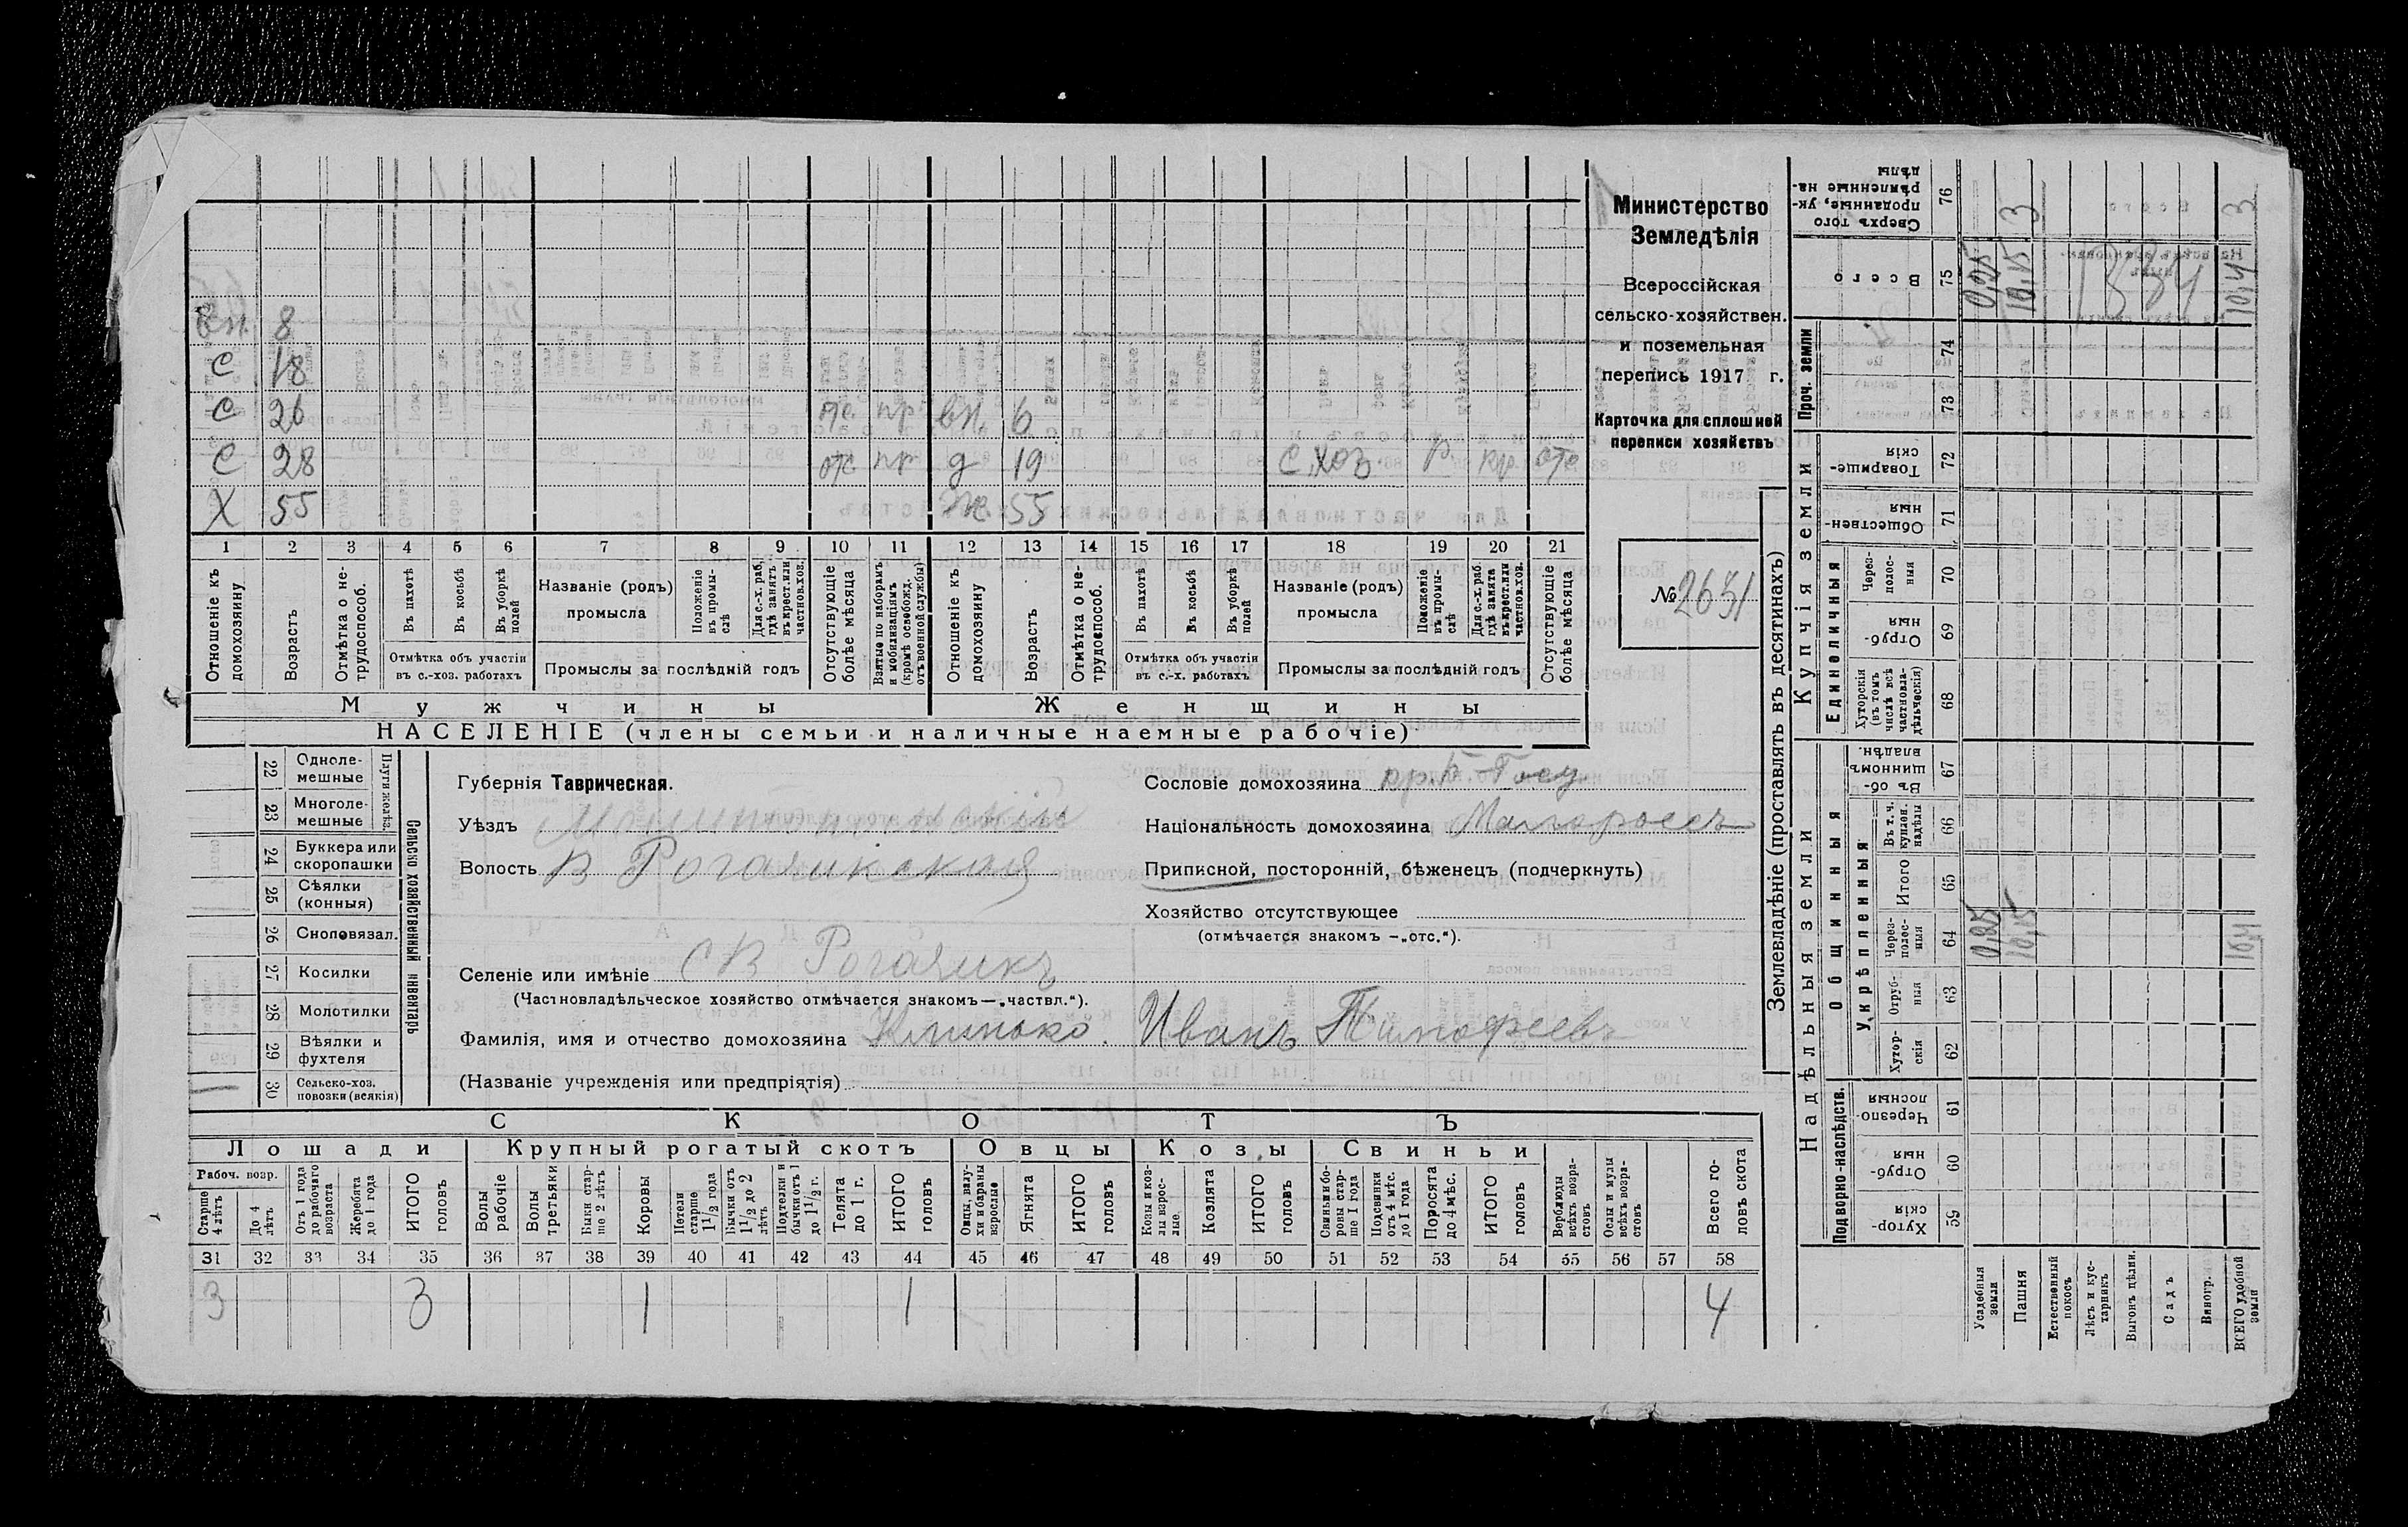 Министерство
Земледѣлія
Всероссійская
сельско-хозяйствен.
и поземельная
перепись 1917 г.
Карточка для сплошней
переписи хозяйствъ
№ 2651
вн. 8
С 18
С 26 отс. пр вн. 6
С 28 отс пр д 19 С.хоз. р. кр. отс
Х 55 Ж. 55
1 2 3 4 5 6 7 8 9 10 11 12 13 14 15 16 17 18 19 20 21
Отношеніе къ домохозяину.
Возрастъ
Отмѣтка о не-трудоспособ.
Въ пахотѣ
Въ косьбѣ
Въ уборкѣ полей
Отмѣтка объ участіи въ с.-хоз. работахъ
Названіе (родъ) промысла
Положеніе въ промы-слѣ
Для с.-х. раб. гдѣ занятъ въ крест. или частнов. хоз.
Промыслы за послѣдній годъ
Отсутствующіе болѣе мѣсяца
Взятые по наборамъ и мобилизаціямъ (кромѣ освобожд. отъ военной службы)
Отношеніе къ домохозяину
Возрастъ
Отмѣтка о не-трудоспособ.
Въ пахотѣ
Въ косьбѣ
Въ уборкѣ полей
Отмѣтка объ участіи въ с.-х. работахъ
Названіе (родъ) промысла
Положеніе въ промы-слѣ
Для с.-х. раб. гдѣ занята въ крест. или частнов. хоз.
Промыслы за послѣдній годъ
Отсутствующіе болѣе мѣсяца
Мужчины Женщины
НАСЕЛЕНІЕ (члены семьи и наличные наемные рабочіе)
Сельско хозяйственный инвентарь
Плуги желѣз.
22 Одноле-мешные
23 Многоле-мешные
24 Буккера или скоропашки
25 Сѣялки (конныя)
26 Сноповязал.
27 Косилки
28 Молотилки
29 Вѣялки и фухтеля
30 Сельско-хоз. повозки (всякія) 1
Губернія Таврическая.
Уѣздъ Мелитопольскій
Волость В Рогачикская
Селеніе или имѣніе С В Рогачикъ
(Частновладѣльческое хозяйство отмѣчается знакомъ—„частвл.“).
Фамилія, имя и отчество домохозяина Клипоко. Иванъ Тимофеевъ
(Названіе учрежденія или предпріятія)
Сословіе домохозяина кр. б. Госу.
Національность домохозяина Малороссъ
Приписной, посторонній, бѣженецъ (подчеркнуть)
Хозяйство отсутствующее
(отмѣчается знакомъ —„отс.“).
СКОТЪ
Лошади Крупный рогатый скотъ Овцы Козы Свиньи
Рабоч. возр.
Старше 4 лѣтъ
До 4 лѣтъ
Отъ 1 года до рабочаго возраста
Жеребята до 1 года
ИТОГО головъ
Волы рабочіе
Волы третьяки
Быки стар-ше 2 лѣтъ
Коровы
Нетели старше 1½ года
Бычки отъ 1½ до 2 лѣтъ
Подтелки и бычки отъ 1 до 1½ г.
Телята до 1 г.
ИТОГО головъ
Овцы, валу-хи и бараны взрослые
Ягнята
ИТОГО головъ
Козы и коз-лы взрос-лые.
Козлята
ИТОГО головъ
Свиньи и бо-ровы стар-ше 1 года
Подсвинки отъ 4 мѣс. до 1 года
Поросята до 4 мѣс.
ИТОГО головъ
Верблюды всѣхъ возра-стовъ
Ослы и мулы всѣхъ возра-стовъ
Всего го-ловъ скота
31 32 33 34 35 36 37 38 39 40 41 42 43 44 45 46 47 48 49 50 51 52 53 54 55 56 57 58
3 3 1 1 4
Землевладѣніе (проставлять въ десятинахъ)
Надѣльныя земли Купчія земли Проч. земли
Подворно-наслѣдств. Общинныя Единоличныя
Укрѣпленныя
Хутор-скія 59
Отруб-ныя 60
Черезпо-лосныя 61
Хутор-скія 62
Отруб-ныя 63
Через-полос-ныя 64
Итого 65
Въ т. ч. куплен. надѣлы 66
Въ об-щинномъ владѣн. 67
Хуторскія (въ томъ числѣ всѣ частновла-дѣльческія) 68
Отруб-ныя 69
Через-полос-ныя 70
Обществен-ныя 71
Товарище-скія 72
73
74
Всего 75
Сверхъ того проданные, ук-рѣпленные на-дѣлы 76
Усадебныя земли 0,25
Пашня 10,15 10,15 3
Естественный покосъ
Лѣсъ и кус-тарникъ
Выгонъ цѣлин.
Садъ
Виногр.
ВСЕГО удобной земли 10,4 10,4 3